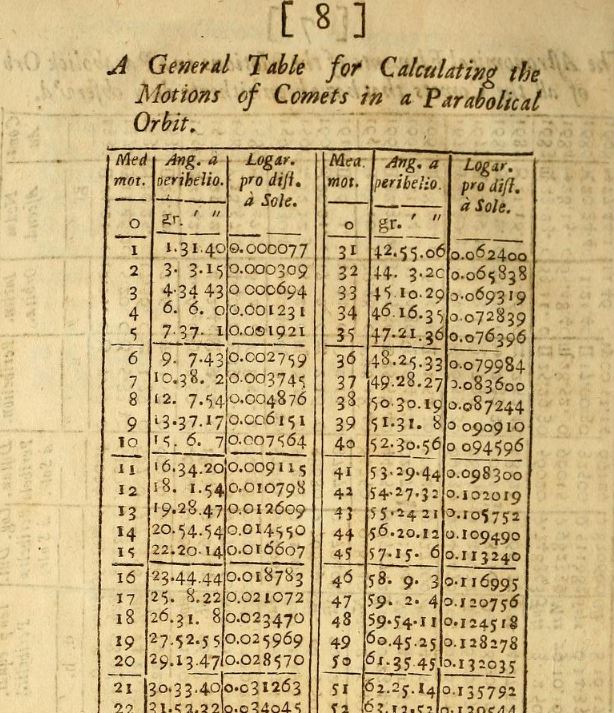 [ 8 ]
A General Table for Calculating the
Motions of Comets in a Parabolical
Orbit.
Med Ang. a Logar. Mea. Ang. a Logar.
mot. peribelio. pro dist. mot. peribelio. pro dist.
à Sole. à Sole.
0 gr. ′ ″ 0 gr. ′ ″
1 1.31.40 0.000077 31 42.55.06 0.062400
2 3. 3.15 0.000309 32 44. 3.20 0.065838
3 4.34 43 0 000694 33 45.10.29 0.069319
4 6. 6. 0 0.001231 34 46.16.35 0.072839
5 7.37. 1 0.001921 35 47.21.36 0.076396
6 9. 7.43 0.002759 36 48.25.33 0.079984
7 10.38. 2 0.003745 37 49.28.27 0.083600
8 12. 7.54 0.004876 38 50.30.19 0.087244
9 13.37.17 0.006151 39 51.31. 8 0 090910
10 15. 6. 7 0.007564 40 52.30.56 0 094596
11 16.34.20 0.009115 41 53.29.44 0.098300
12 18. 1.54 0.010798 42 54.27.32 0.102019
13 19.28.47 0.012609 43 55.24 21 0.105752
14 20.54.54 0.014550 44 56.20.12 0.109490
15 22.20.14 0.016607 45 57.15. 6 0.113240
16 23.44.44 0.018783 46 58. 9. 3 0.116995
17 25. 8.22 0.021072 47 59. 2. 4 0.120756
18 26.31. 8 0.023470 48 59.54.11 0.124518
19 27.52.55 0.025969 49 60.45.25 0.128278
20 29.13.47 0.028570 50 61.35.45 0.132035
21 30.33.40 0.031263 51 62.25.14 0.135792
22 31.52.32 0.034045 52